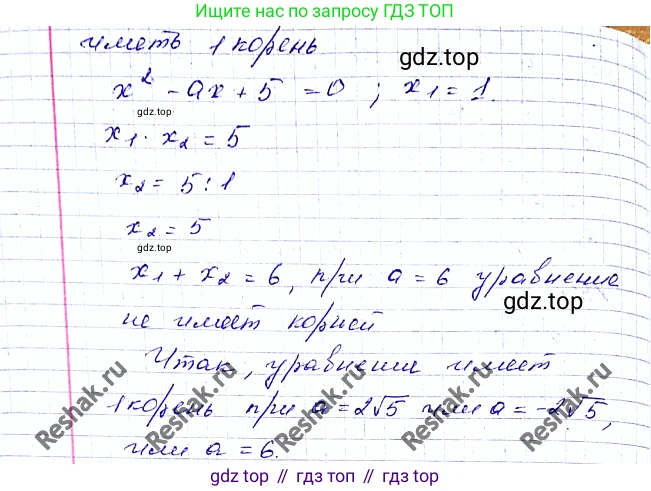 Ищите нас по запросу ГДЗ ТОП
иметь 1 корень
gdz.top
x² - ax + 5 = 0 ; x₁ = 1.
gdz.top
x₁ · x₂ = 5
x₂ = 5 : 1
x₂ = 5
gdz.top
x₁ + x₂ = 6, при a = 6 уравнение
gdz.top
не имеет корней
Итак, уравнение имеет
1 корень при a = 2√5 или a = -2√5,
или a = 6.
Reshak.ru
Reshak.ru
Reshak.ru
Reshak.ru
gdz top // гдз топ // gdz.top